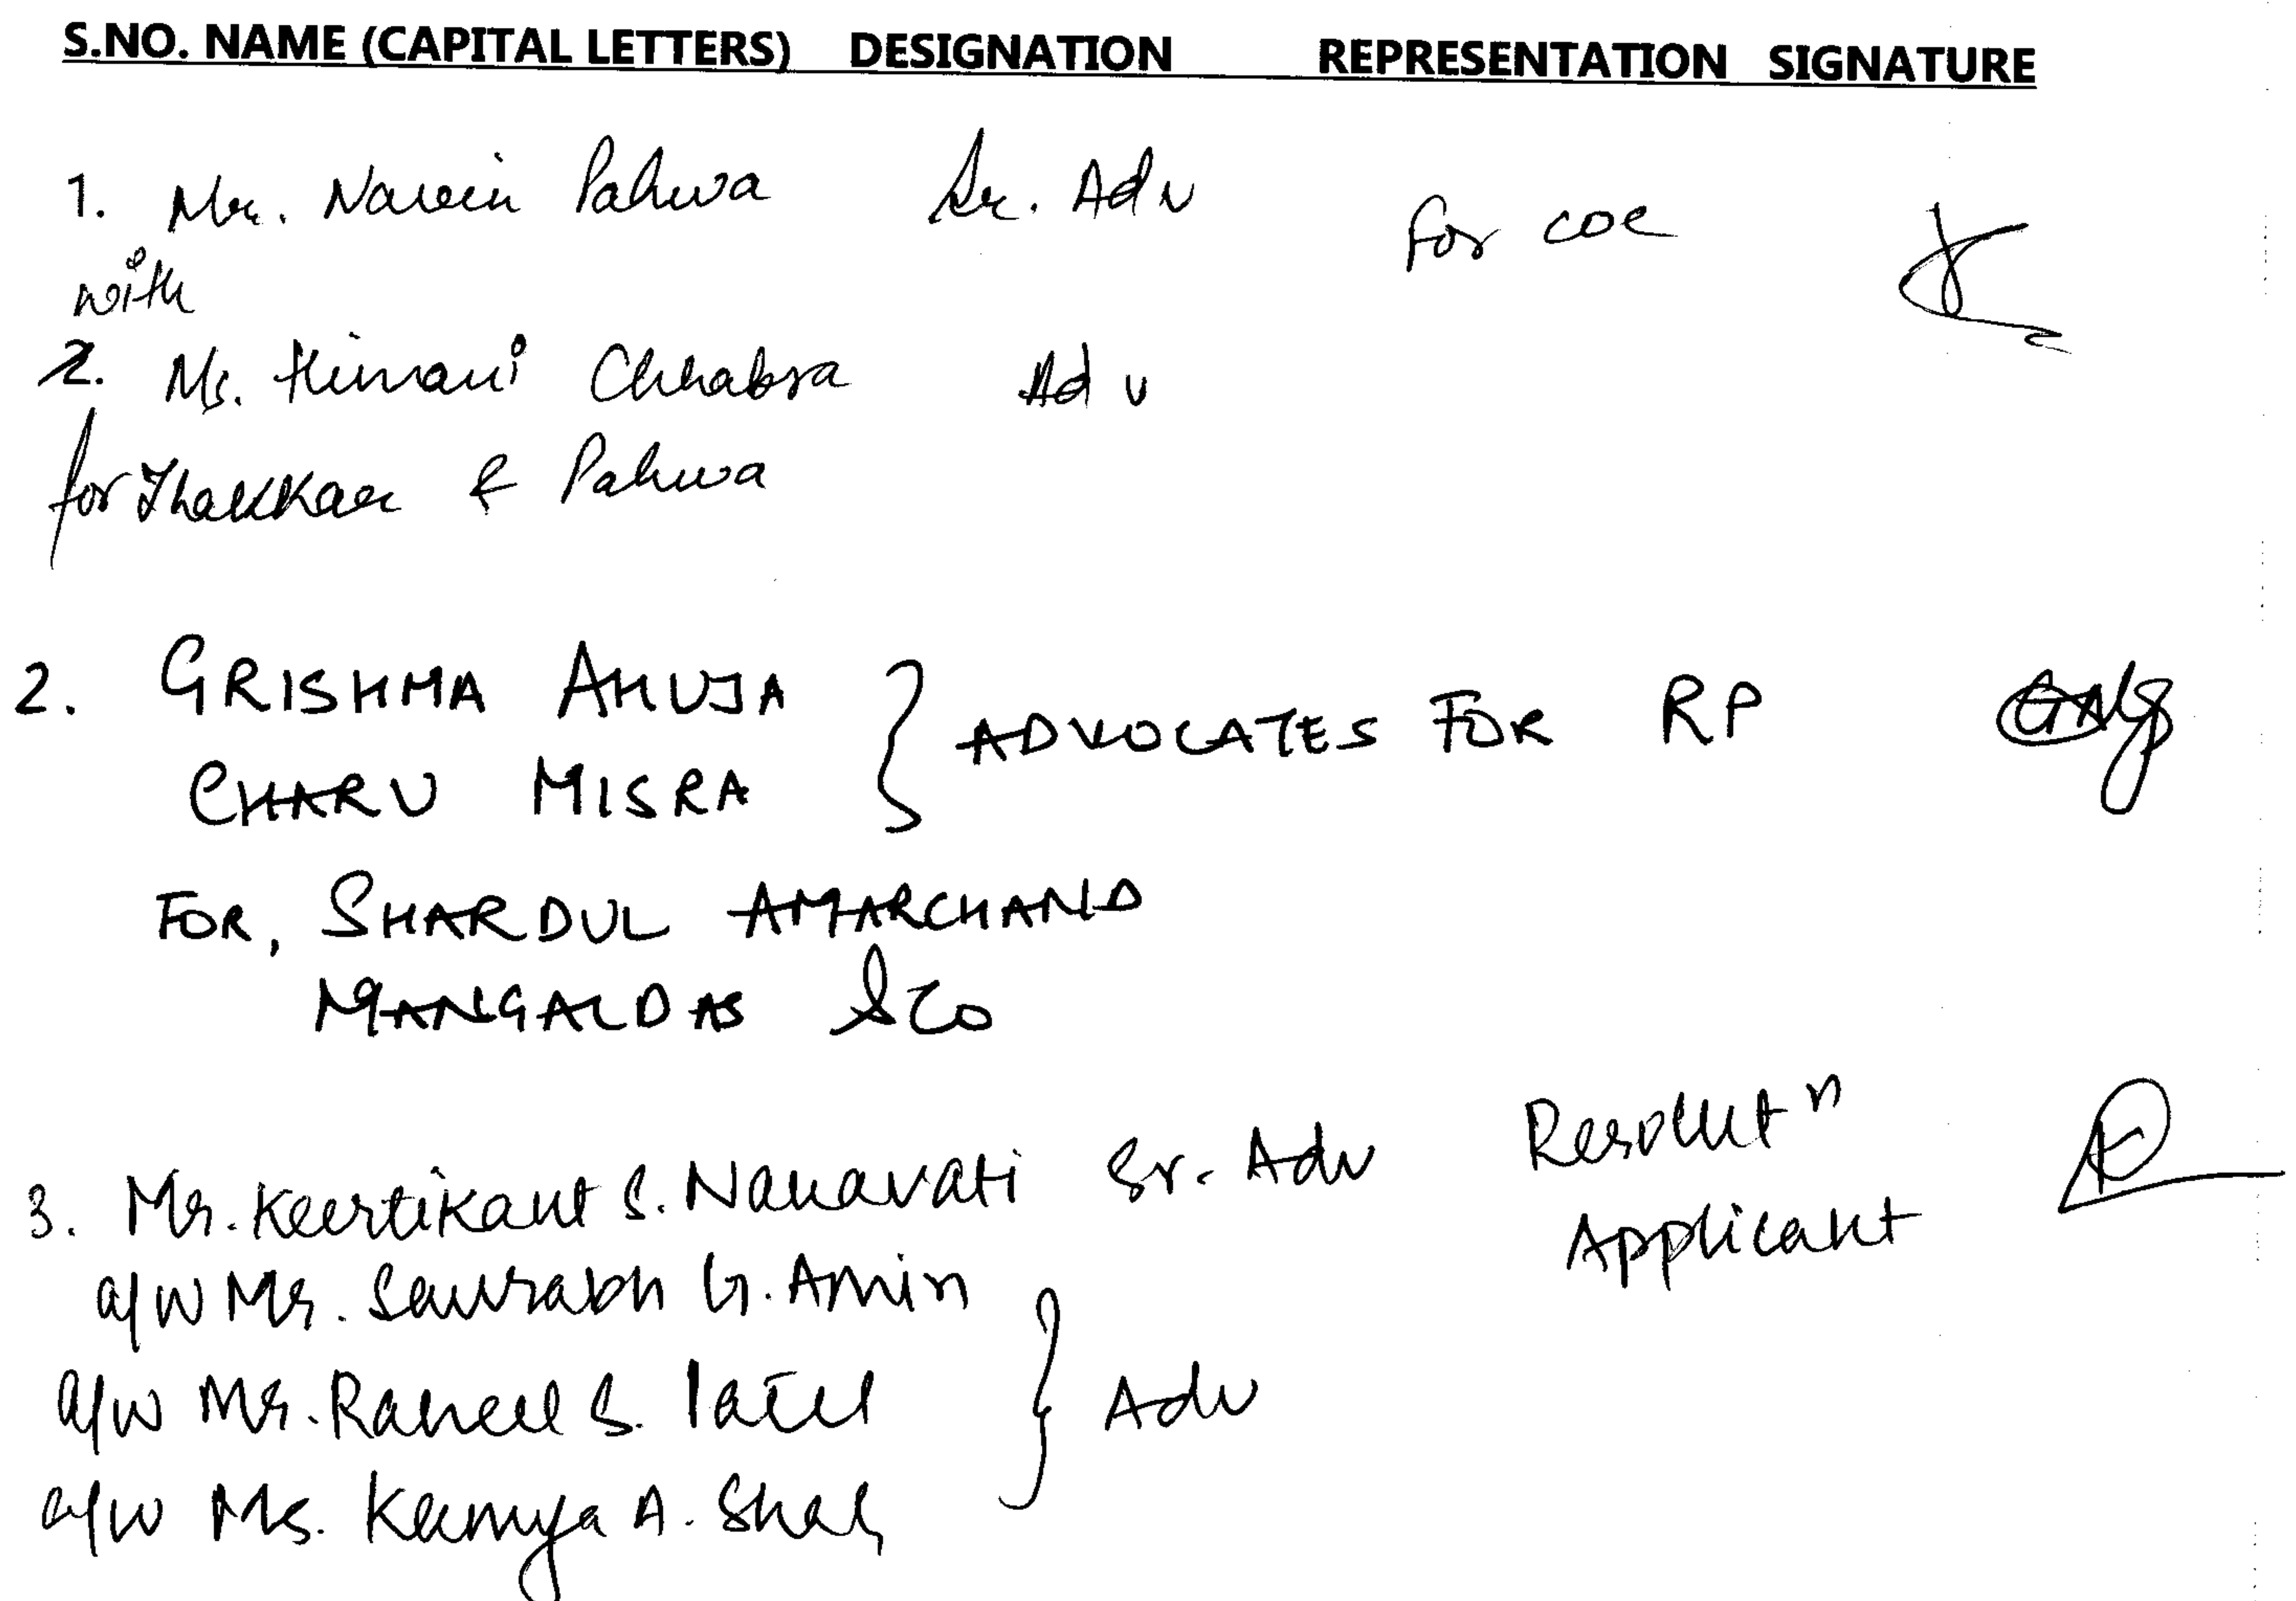 S.NO. NAME (CAPITAL LETTERS) DESIGNATION REPRESENTATION SIGNATURE
1. Mr. Navin Pahwa Sr. Adv For COC
with
2. Ms. Himani Chhabra Adv
for Thakkar & Pahwa
2. GRISHMA AHUJA } ADVOCATES FOR RP
CHARU MISRA
FOR, SHARDUL AMARCHAND
MANGALDAS & CO
3. Mr. Keertikant S. Nanavati Sr. Adv Resolutn
Applicant
a/w Mr. Saurabh G. Amin
a/w Mr. Raheel S. Patel } Adv
a/w Ms. Kamya A. Shah